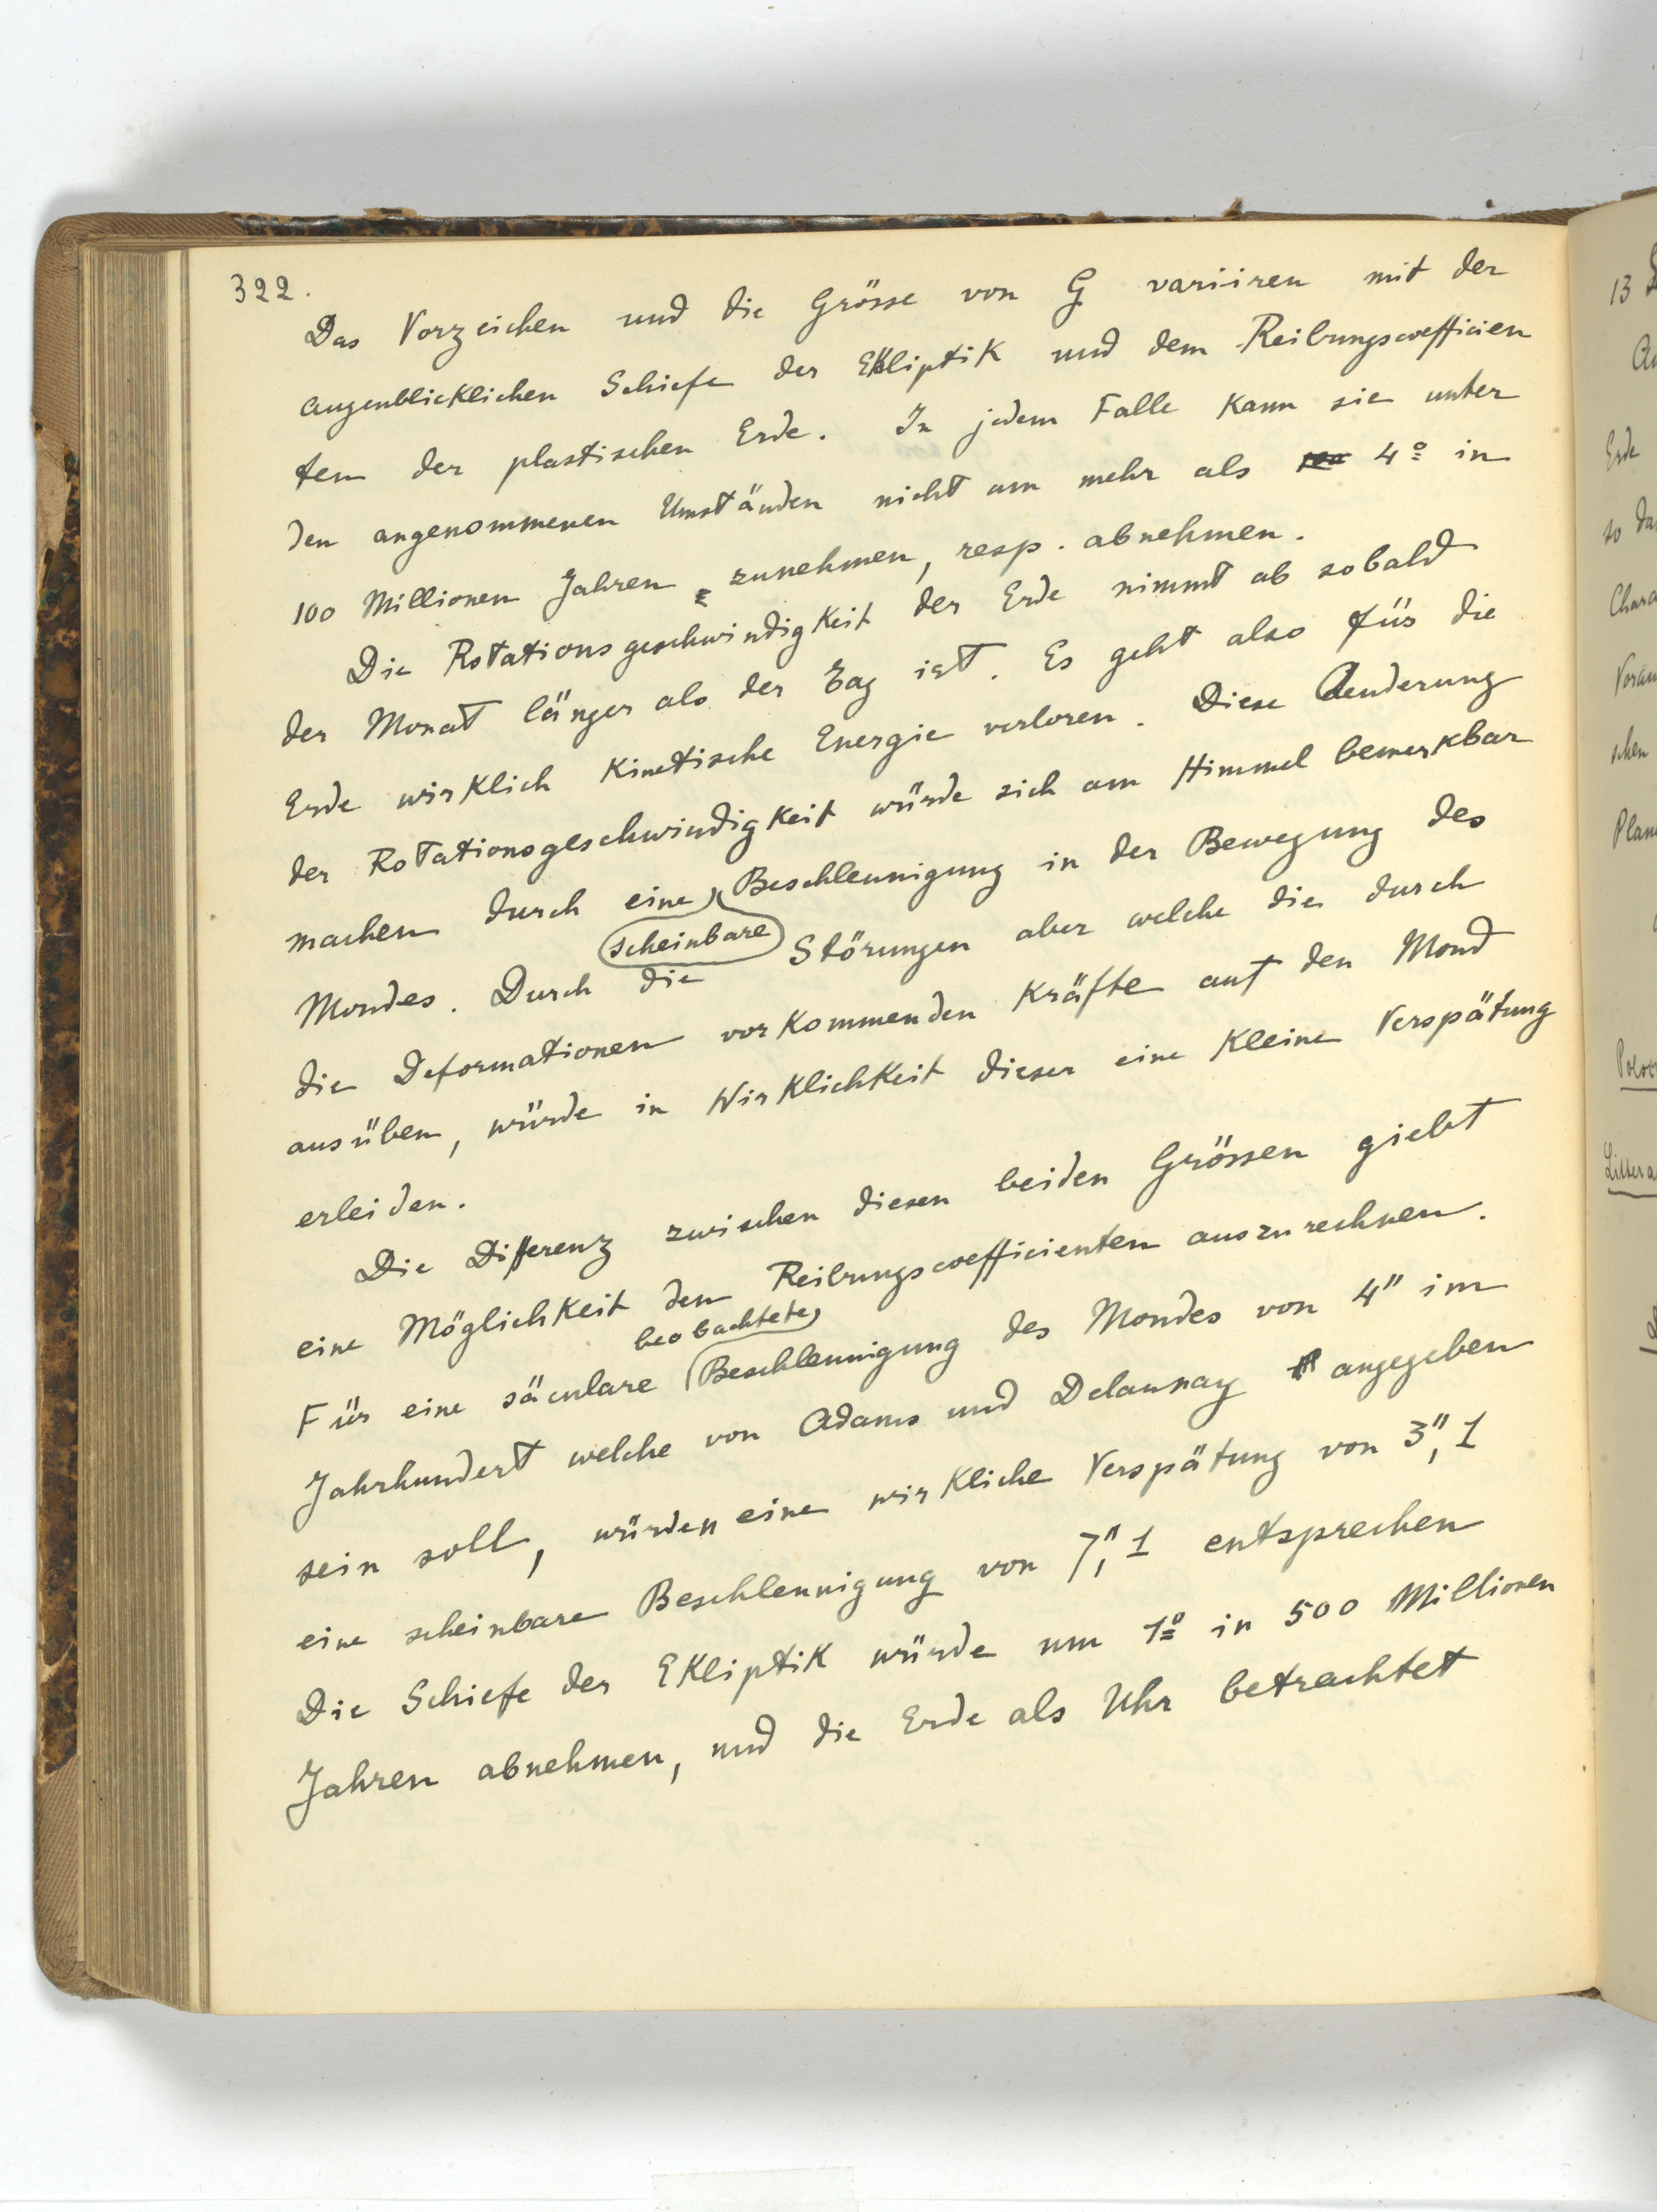 322.
Das Vorzeichen und die Grösse von G variiren mit der
augenblicklichen Schiefe der Ekliptik und dem Reibungscoefficien
ten der plastischen Erde. In jedem Falle kann sie unter
den angenommenen Umständen nicht um mehr als 4° in
100 Millionen Jahren zunehmen, resp. abnehmen.
Die Rotationsgeschwindigkeit der Erde nimmt ab sobald
der Monat länger als der Tag ist. Es geht also für die
Erde wirklich kinetische Energie verloren. Diese Aenderung
der Rotationsgeschwindigkeit würde sich am Himmel bemerkbar
machen durch eine scheinbare Beschleunigung in der Bewegung des
Mondes. Durch die Störungen aber welche die durch
die Deformationen vorkommenden Kräfte auf den Mond
ausüben, würde in Wirklichkeit dieser eine kleine Verspätung
erleiden.
Die Differenz zwischen diesen beiden Grössen giebt
eine Möglichkeit den Reibungscoefficienten auszurechnen.
Für eine säculare beobachtete Beschleunigung des Mondes von 4" im
Jahrhundert welche von Adams und Delaunay angegeben
sein soll, würden eine wirkliche Verspätung von 3",1
eine scheinbare Beschleunigung von 7",1 entsprechen
Die Schiefe der Ekliptik würde um 1° in 500 Millionen
Jahren abnehmen, und die Erde als Uhr betrachtet
13
Erde
so da
schen